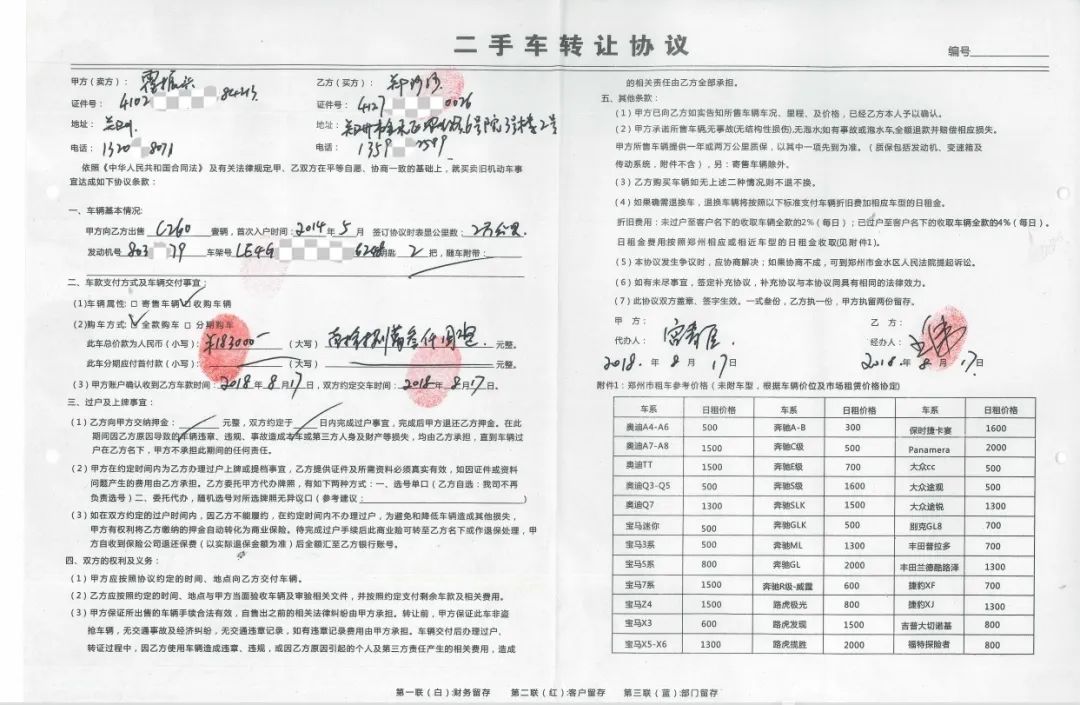 二手车转让协议
编号
甲方（卖方）：
乙方（买方）：
证件号： 4102
证件号： 4127 0026
地址： 郑州
地址：
电话： 1320 8071
电话： 1359 2599
依照《中华人民共和国合同法》及有关法律规定,甲、乙双方在平等自愿、协商一致的基础上，就买卖旧机动车事
宜达成如下协议条款：
一、车辆基本情况:
甲方向乙方出售 C260 壹辆，首次入户时间：2014 年 5 月 签订协议时表显公里数：2万公里
发动机号 803 79 车架号 LE4G 6248 匙 2 把，随车附带：
二、车款支付方式及车辆交付事宜：
(1)车辆属性: □ 寄售车辆 □ 收购车辆
(2)购车方式: □ 全款购车 □ 分期购车
此车总价款为人民币（小写）：¥183000 （大写） 元整。
此车分期应付首付款（小写）： （大写） 元整。
（3）甲方账户确认收到乙方车款时间：2018 年 8 月 17 日，双方约定交车时间：2018 年 8 月 17 日。
三、过户及上牌事宜：
（1）乙方向甲方交纳押金： 元整，双方约定于 日内完成过户事宜，完成后甲方退还乙方押金。在此
期间因乙方原因导致的车辆违章、违规、事故造成本车或第三方人身及财产等损失，均由乙方承担，直到车辆过
户在乙方名下，甲方不承担此期间的任何责任。
（2）甲方在约定时间内为乙方办理过户上牌或提档事宜，乙方提供证件及所需资料必须真实有效，如因证件或资料
问题产生的费用由乙方承担。乙方委托甲方代办牌照，有如下两种方式：一、选号单口（乙方自选：我司不再
负责选号）二、委托代办，随机选号对所选牌照无异议口（参考建议： ）
（3）如在双方约定的过户时间内，因乙方不能履约，在约定时间内不办理过户，为避免和降低车辆造成其他损失，
甲方有权利将乙方缴纳的押金自动转化为商业保险。待完成过户手续后此商业险可转至乙方名下或作退保处理，甲
方自收到保险公司退还保费（以实际退保金额为准）后全额汇至乙方银行账号。
四、双方的权利及义务：
（1）甲方应按照协议约定的时间、地点向乙方交付车辆。
（2）乙方应按照约定的时间、地点与甲方当面验收车辆及审验相关文件，并按照约定支付剩余车款及相关费用。
（3）甲方保证所出售的车辆手续合法有效，自售出之前的相关法律纠纷由甲方承担。转让前，甲方保证此车非盗
抢车辆，无交通事故及经济纠纷，无交通违章记录，如有违章记录费用由甲方承担。车辆交付后办理过户、
转证过程中，因乙方使用车辆造成违章、违规，或因乙方原因引起的个人及第三方责任产生的相关费用，造成
的相关责任由乙方全部承担。
五、其他条款：
（1）甲方已向乙方如实告知所售车辆车况、里程、及价格，已经乙方本人予以确认。
（2）甲方承诺所售车辆,无事故(无结构性损伤),无泡水,如有事故或泡水车,全额退款并赔偿相应损失。
甲方所售车辆提供一年或两万公里质保，以其中一项先到为准。（质保包括发动机、变速箱及
传动系统，附件不含），另：寄售车辆除外。
（3）乙方购买车辆如无上述二种情况则不退不换。
（4）如果确需退换车，退换车辆将按照以下标准支付车辆折旧费加相应车型的日租金。
折旧费用：未过户至客户名下的收取车辆全款的2%（每日）；已过户至客户名下的收取车辆全款的4%（每日）。
日租金费用按照郑州相应或相近车型的日租金收取(见附件1)。
（5）本协议发生争议时，应协商解决；如果协商不成，可到郑州市金水区人民法院提起诉讼。
（6）如有未尽事宜，签定补充协议，补充协议与本协议同具有相同的法律效力。
（7）此协议双方盖章、签字生效。一式叁份，乙方执一份，甲方执留两份留存。
甲 方：
乙 方：
代办人：
经办人：
2018. 年 8 月 17 日
2018. 年 8 月 17 日
附件1：郑州市租车参考价格（未附车型，根据车辆价位及市场租赁价格协定)
车系 日租价格 车系 日租价格 车系 日租价格
奥迪A4-A6 500 奔驰A-B 300 保时捷卡宴 1600
奥迪A7-A8 1500 奔驰C级 500 Panamera 2000
奥迪TT 1500 奔驰E级 700 大众cc 500
奥迪Q3-Q5 500 奔驰S级 1600 大众途观 500
奥迪Q7 1300 奔驰SLK 1500 大众途锐 1300
宝马迷你 500 奔驰GLK 500 别克GL8 700
宝马3系 500 奔驰ML 1300 丰田普拉多 700
宝马5系 800 奔驰GL 2000 丰田兰德酷路泽 1300
宝马7系 1500 奔驰R级-威霆 600 捷豹XF 700
宝马Z4 1500 路虎极光 800 捷豹XJ 1300
宝马X3 600 路虎发现 1500 吉普大切诺基 800
宝马X5-X6 1300 路虎揽胜 2000 福特探险者 800
第一联（白）:财务留存 第二联（红）:客户留存 第三联（蓝）:部门留存